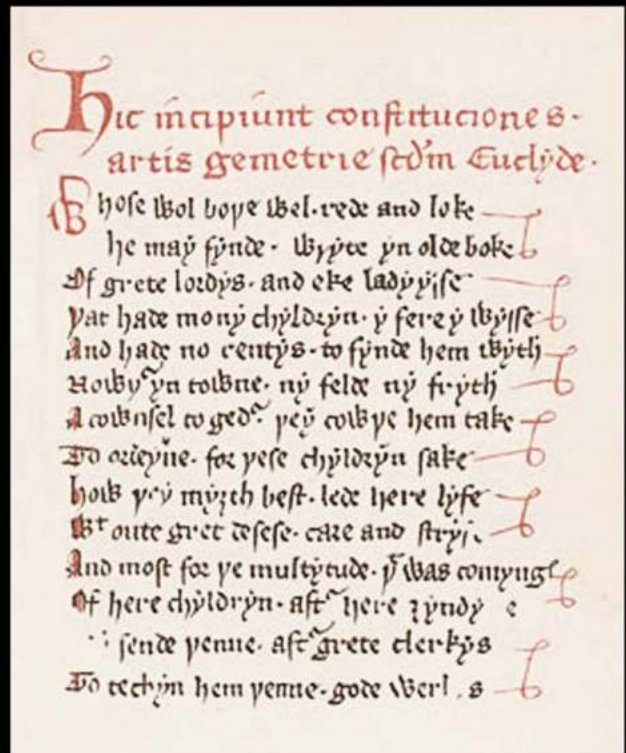 Hic incipiunt constituciones
artis gemetrie scd'm Euclyde.
Whose wol boþe wel rede and loke
he may fynde wryte yn olde boke
Of grete lordys and eke ladyysse
þat hade mony chyldryn y fere y wysse
And hade no rentys to fynde hem wyth
Nowþ' yn towne ny felde ny fryth
A cownsel to ged' þey cowþe hem take
To ordeyne for þese chyldryn sake
how þey myȝth best lede here lyfe
Wt oute gret desese care and
And most for þe multytude þt was
Of here chyldryn aft' here
sende þenne aft' grete clerkys
To techyn hem þenne gode